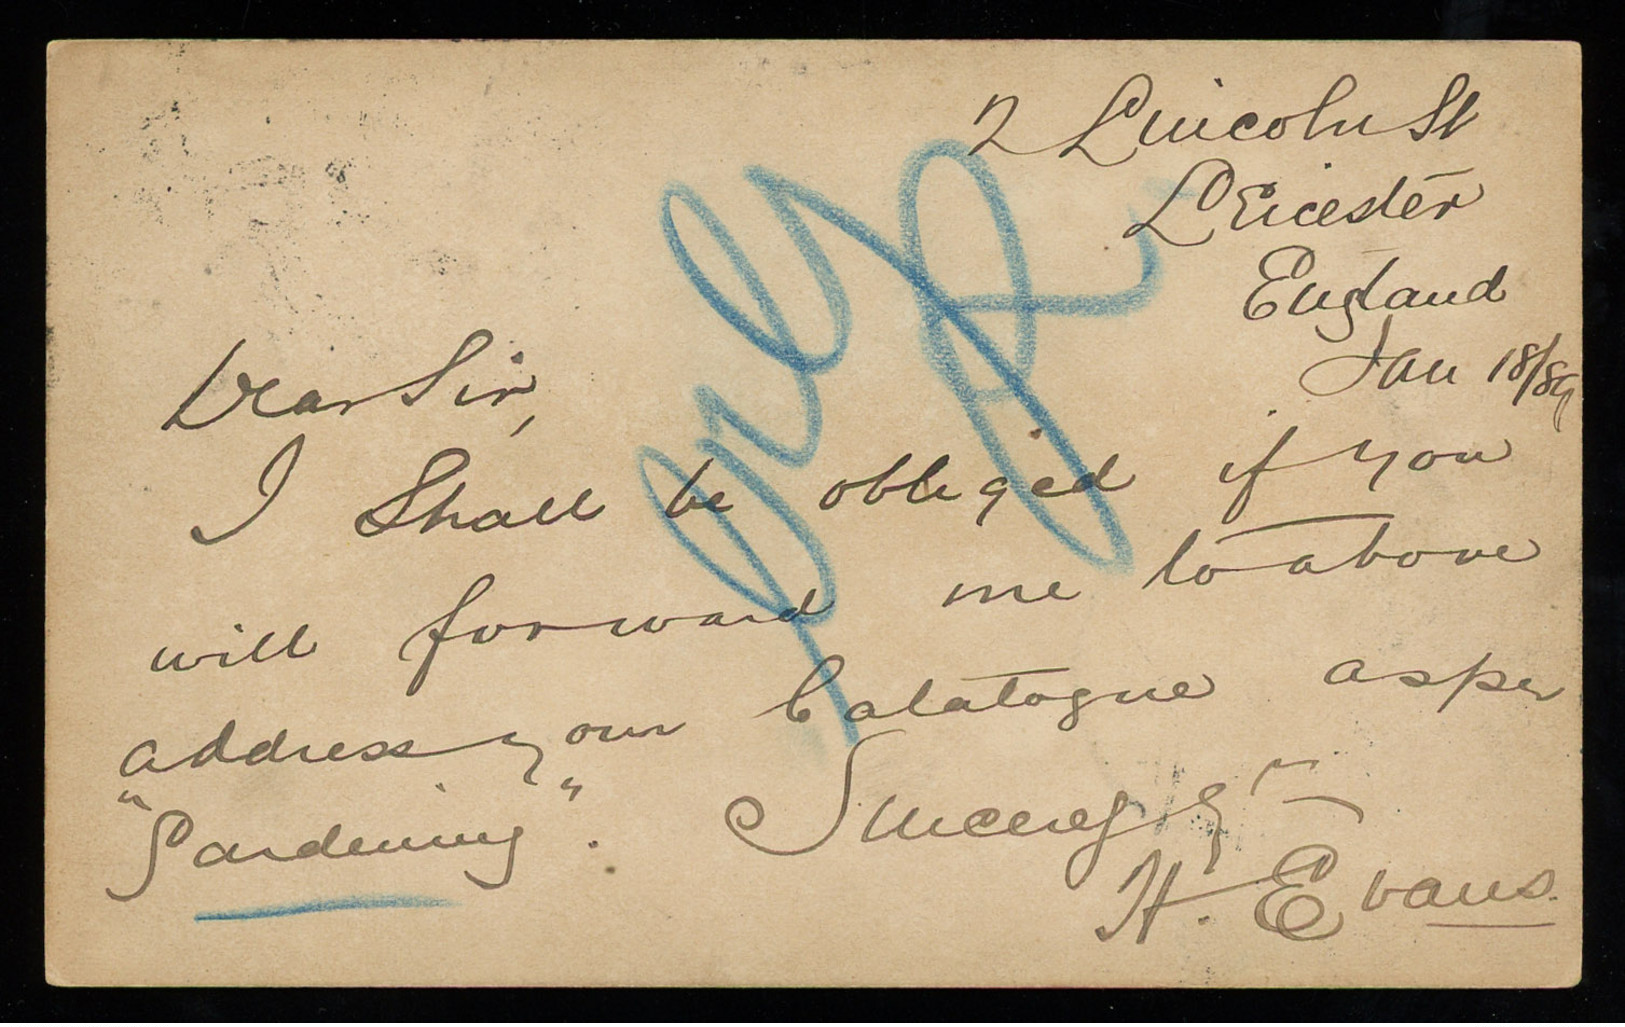 2 Lincoln St
Leicester
England
Jan 18/89
Dear Sir,
I Shall be obliged if you
will forward me to above
address your Catalogue as per
"Gardening".
Sincerely
H. Evans.